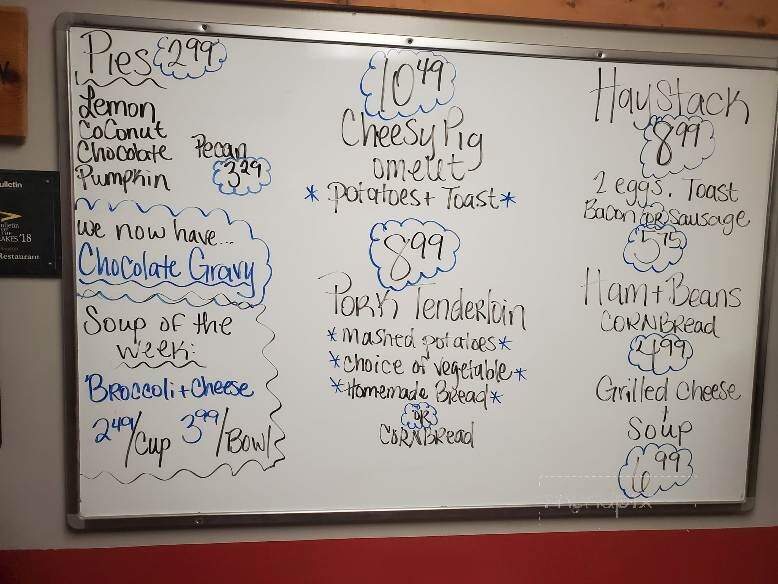 Pies 2.99
Lemon
Coconut
Chocolate Pecan
Pumpkin 3.29
we now have...
Chocolate Gravy
Soup of the
week:
Broccoli + Cheese
2.49/Cup 3.99/Bowl
10.49
Cheesy Pig
omelet
* potatoes + Toast *
8.99
Pork Tenderloin
* mashed potatoes *
* choice of vegetable *
* Homemade Bread *
OR
CORNBRead
Haystack
8.99
2 eggs, Toast
Bacon OR Sausage
5.75
Ham + Beans
CORNBRead
4.99
Grilled Cheese
+
Soup
6.99
ulletin
AKES '18
Restaurant